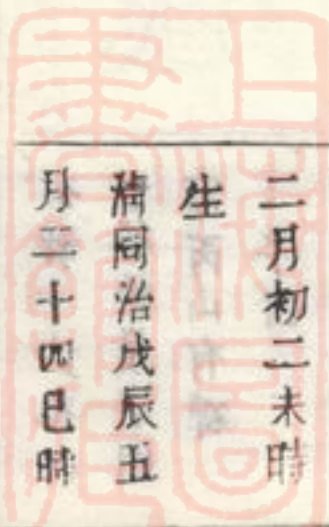 二月初二未時
生
清同治戊辰五
月二十四巳時